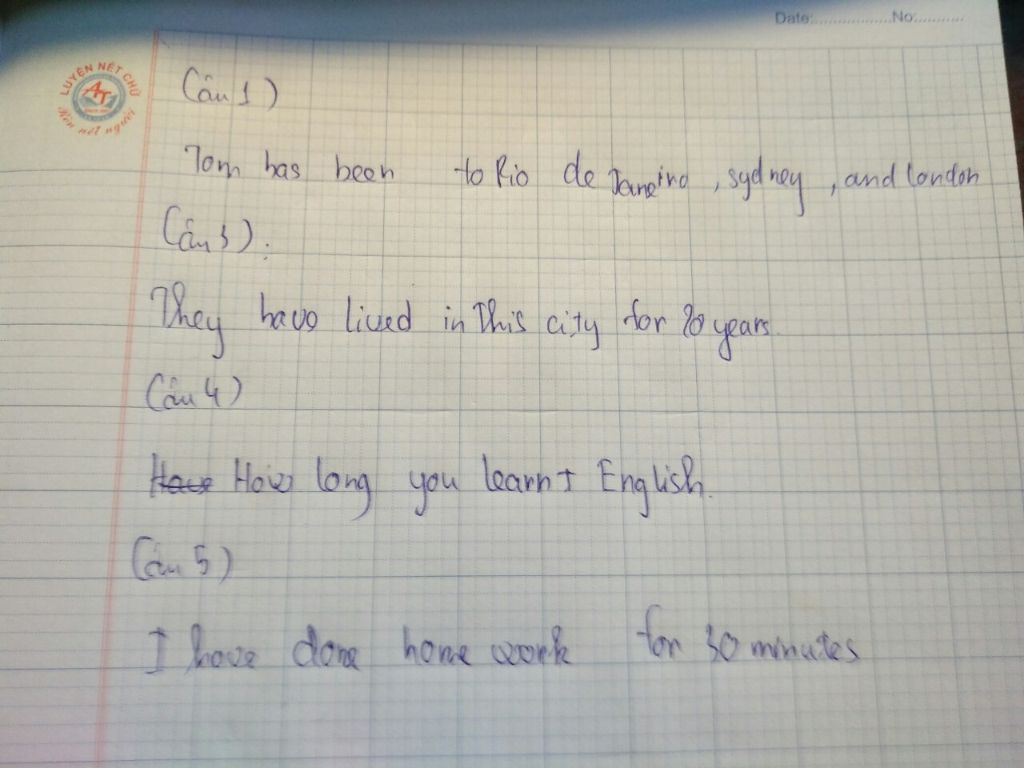 Date:............No:............
LUYỆN NÉT CHỮ
AT
Rèn nết người
Câu 1)
Tom has been to Rio de Janeiro , sydney , and london
Câu 3) :
They have lived in This city for 20 years
Câu 4)
Have How long you learnt English.
Câu 5)
I have done home work for 30 minutes